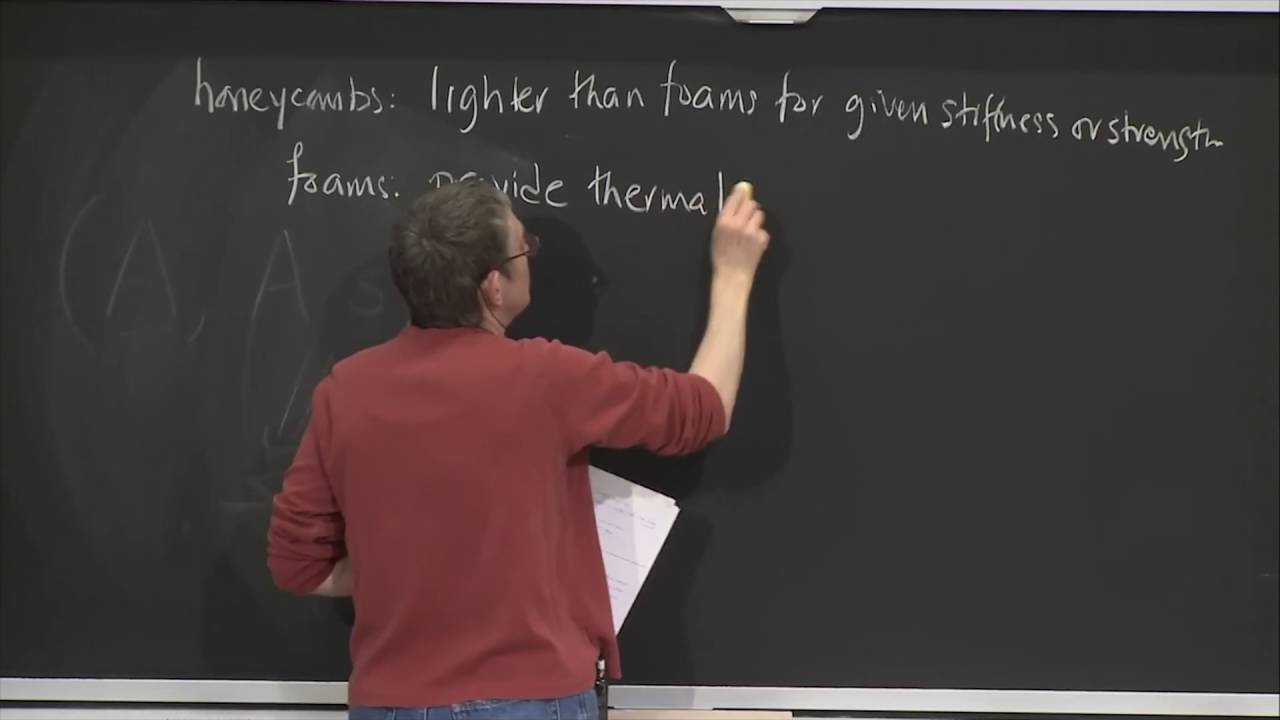 honeycombs: lighter than foams for given stiffness or strength
foams: provide thermal
(A A s